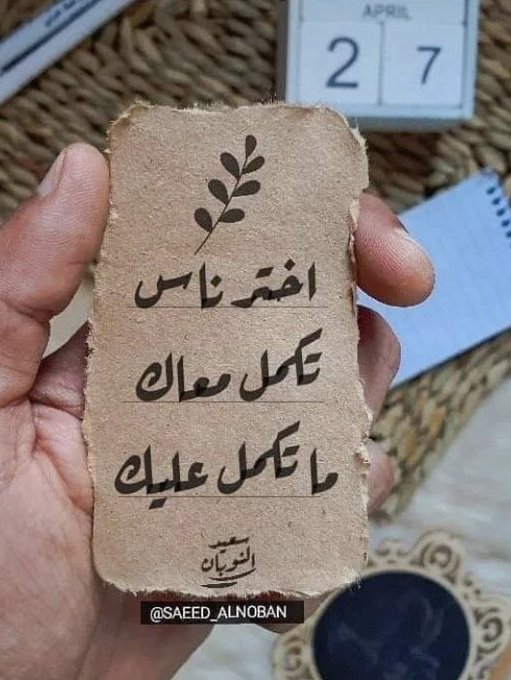 APRIL
2 7
اختر ناس
تكمل معاك
ما تكمل عليك
سعيد
النوبان
@SAEED_ALNOBAN